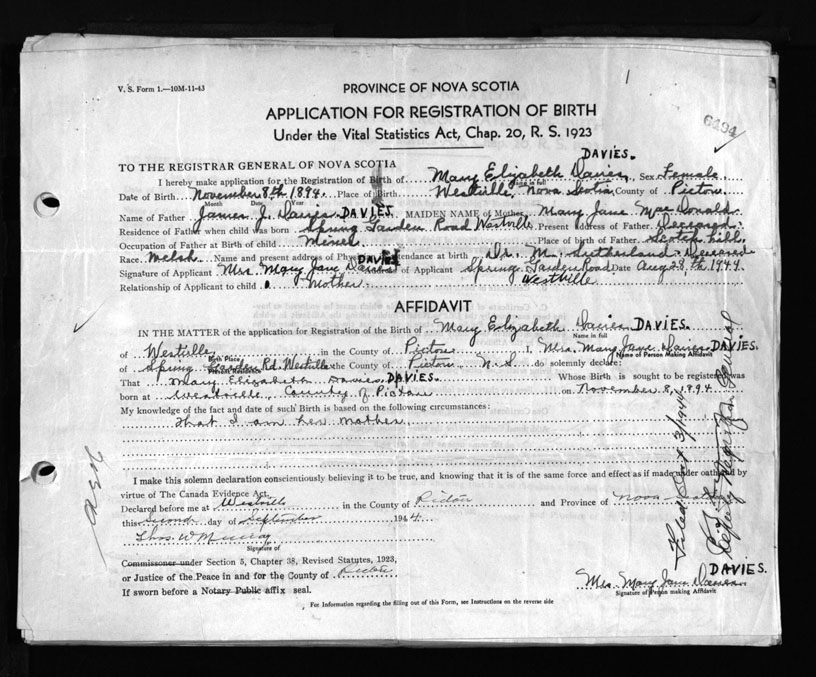 V. S. Form 1.—10M-11-43
PROVINCE OF NOVA SCOTIA
APPLICATION FOR REGISTRATION OF BIRTH
6494
Under the Vital Statistics Act, Chap. 20, R. S. 1923
DAVIES.
TO THE REGISTRAR GENERAL OF NOVA SCOTIA
I hereby make application for the Registration of Birth of Mary Elizabeth Davies Sex Female
Name in full
Date of Birth November 8th 1894. Place of Birth Westville, Nova Scotia County of Pictou
Month Day Year
Name of Father James J. Davies DAVIES. MAIDEN NAME of Mother Mary Jane MacDonald
Residence of Father when child was born Spring Garden Road Westville. Present Address of Father Deceased
Occupation of Father at Birth of child Miner Place of birth of Father Scotch Hill
Race Welsh Name and present address of Physician in attendance at birth Dr. M. Sutherland Deceased
Signature of Applicant Mrs Mary Jane Davies DAVIES of Applicant Spring Garden Road Date Aug 28th 1944
Relationship of Applicant to child Mother Westville
AFFIDAVIT
IN THE MATTER of the application for Registration of the Birth of Mary Elizabeth Davies DAVIES.
Name in full
of Westville in the County of Pictou I, Mrs. Mary Jane Davies DAVIES.
Birth Place Name of Person Making Affidavit
of Spring Garden Rd. Westville the County of Pictou, N. S. do solemnly declare:
That Mary Elizabeth Davies DAVIES. Whose Birth is sought to be registered was
born at Westville, County of Pictou on November 8, 1894
My knowledge of the fact and date of such Birth is based on the following circumstances:
That I am her mother
I make this solemn declaration conscientiously believing it to be true, and knowing that it is of the same force and effect as if made under oath and by
virtue of The Canada Evidence Act.
Declared before me at Westville in the County of Pictou and Province of Nova Scotia
this Second day of September 1944
Thos. W Murray
Signature of
Commissoner under Section 5, Chapter 38, Revised Statutes, 1923,
or Justice of the Peace in and for the County of Pictou
DAVIES.
If sworn before a Notary Public affix seal.
Mrs. Mary Jane Davies
Signature of Person making Affidavit
For Information regarding the filling out of this Form, see Instructions on the reverse side
Deputy Registrar General